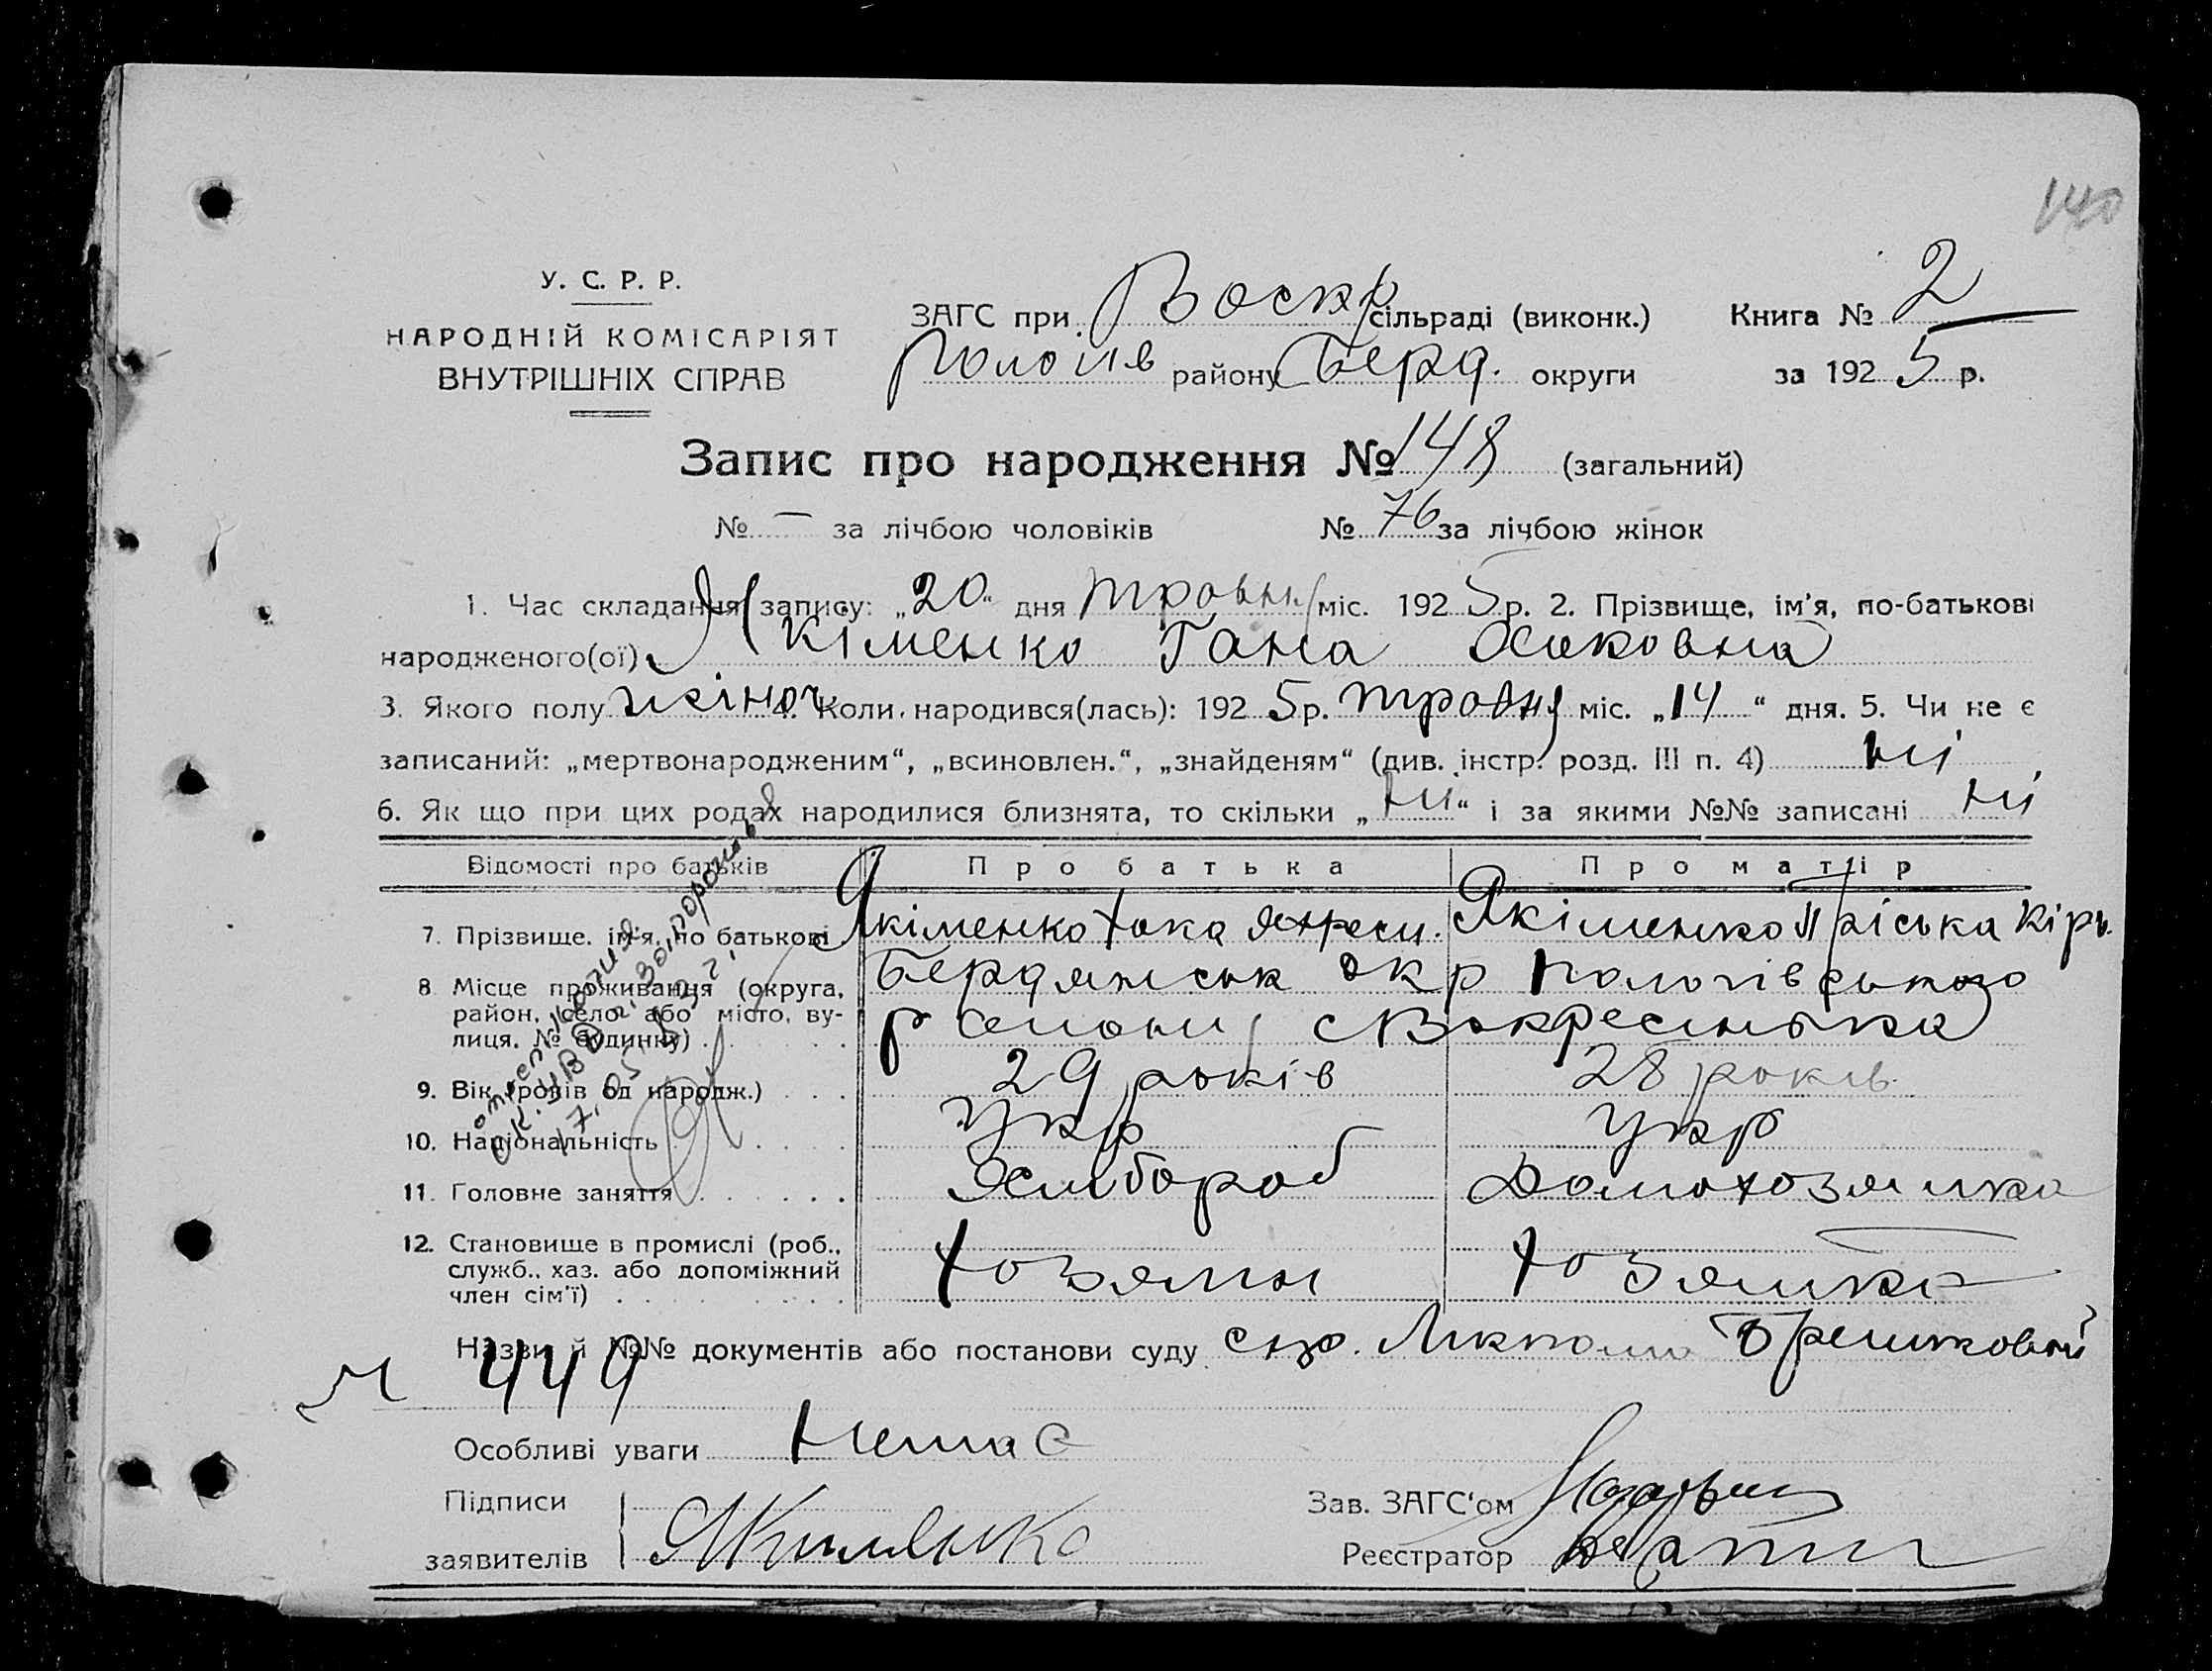 140
У. С. Р. Р.
НАРОДНІЙ КОМІСАРІЯТ
ВНУТРІШНІХ СПРАВ
ЗАГС при Воскр сільраді (виконк.) Книга № 2
району Берд. округи за 1925 р.
Запис про народження № 148 (загальний)
№ — за лічбою чоловіків № 76 за лічбою жінок
1. Час складання запису: „20“ дня травн. міс. 1925 р. 2. Прізвище, ім'я, по-батькові
народженого(ої) Якіменко Гана
3. Якого полу жіноч 4. Коли народився(лась): 1925 р. травня міс. „14“ дня. 5. Чи не є
записаний: „мертвонародженим“, „всиновлен.“, „знайденям“ (див. інстр. розд. III п. 4) ні
6. Як що при цих родах народилися близнята, то скільки „ні“ і за якими №№ записані ні
Відомості про батьків Про батька Про матір
7. Прізвище, ім'я, по батькові Якіменко Якіменко Пріська Кірь.
8. Місце проживання (округа, Бердянськ окр Пологівського
район, село або місто, ву-
лиця, № будинку) району
9. Вік (років од народж.) 29 років 28 років
10. Національність Укр Укр
11. Головне заняття Хлибороб Домохозяйка
12. Становище в промислі (роб., служб., хаз. або допоміжний член сім'ї) хозяин хозяйка
Назви й №№ документів або постанови суду
№ 449
Особливі уваги Немає
Підписи заявителів Якименко
Зав. ЗАГС'ом
Реєстратор